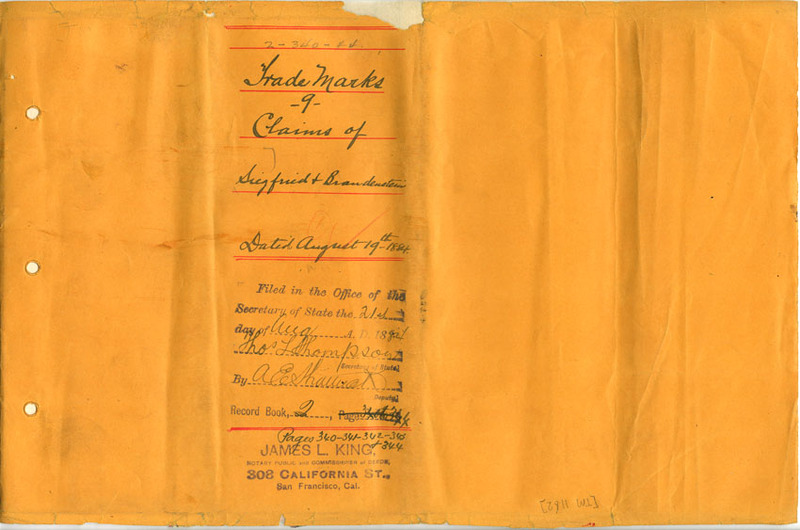 2-340-44.
Trade Marks
-9-
Claims of
Siegfried & Brandenstein
Dated August 19th 1884.
Filed in the Office of the
Secretary of State the 21st
day of Aug A. D. 1884
Thos L Thompson
Secretary of State
By A E Shattuck
Deputy
Record Book, 2, Pages
Pages 340-341-342-343
& 344
JAMES L. KING,
NOTARY PUBLIC and COMMISSIONER of DEEDS,
308 CALIFORNIA ST.,
San Francisco, Cal.
[TM 1182]